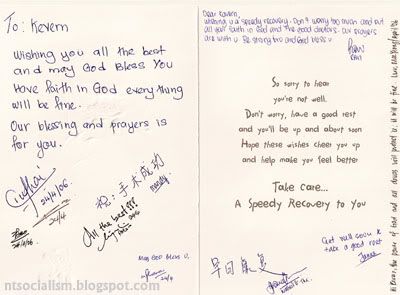 To: Kevern
Wishing you all the best
and may God Bless You
Have faith in God everything
will be fine.
Our blessing and prayers is
for you.
24/4/06
24/4
祝:手术成功
All the best!!!
May God Bless U.
24/4
Dear Kevern,
Wishing u a speedy recovery. Don't worry too much and put
all your faith in God and the good doctors. Our prayers
are with u. Be strong bro and God bless u
So sorry to hear
you're not well.
Don't worry, have a good rest
and you'll be up and about soon
Hope these wishes cheer you up
and help make you feel better
Take care...
A Speedy Recovery to You
早日康复
Get well soon &
take a good rest
ntsocialism.blogspot.com